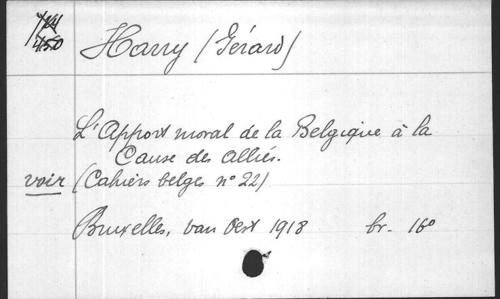 Harry (Gérard)
450
L'Apport moral de la Belgique à la
Cause des Alliés.
voir (Cahiers belges n° 22)
Bruxelles, van Oest 1918 br. 16°